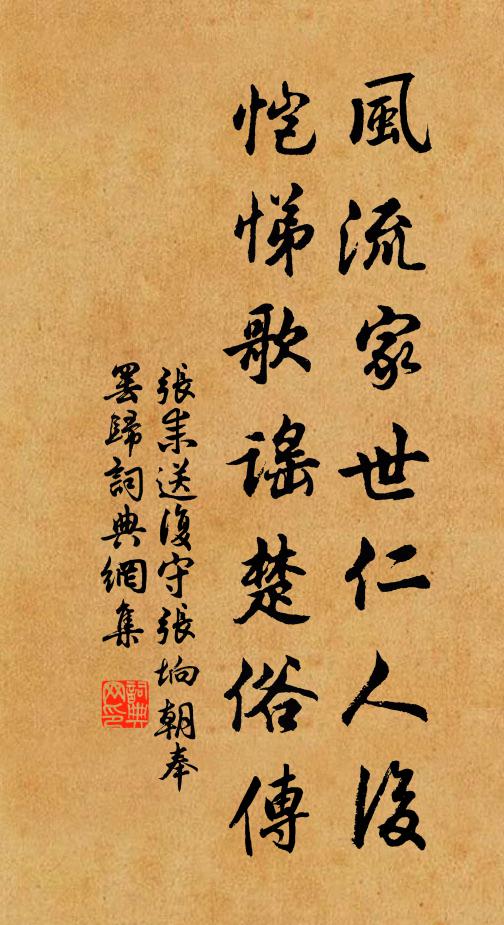 風流家世仁人後
愷悌歌謠楚俗傳
張耒送復守張垧朝奉
罢歸詞典網集
詞典网印